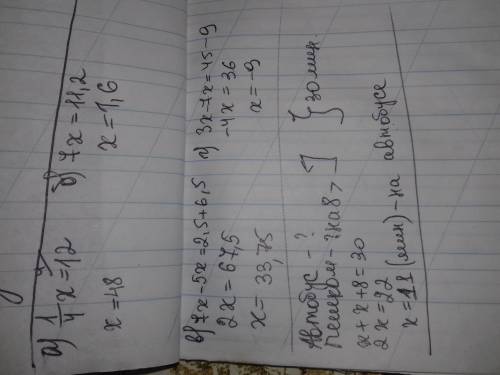 а) 1/4 x = 12
x = 48
б) 7x = 11,2
x = 1,6
в) 7x - 5x = 2,5 + 6,5
2x = 67,5
x = 33,75
г) 3x - 7x = 45 - 9
-4x = 36
x = -9
Автобус - ?
Пешком - ? на 8 > } 30 мин.
x + x + 8 = 30
2x = 22
x = 11 (мин) - на автобусе